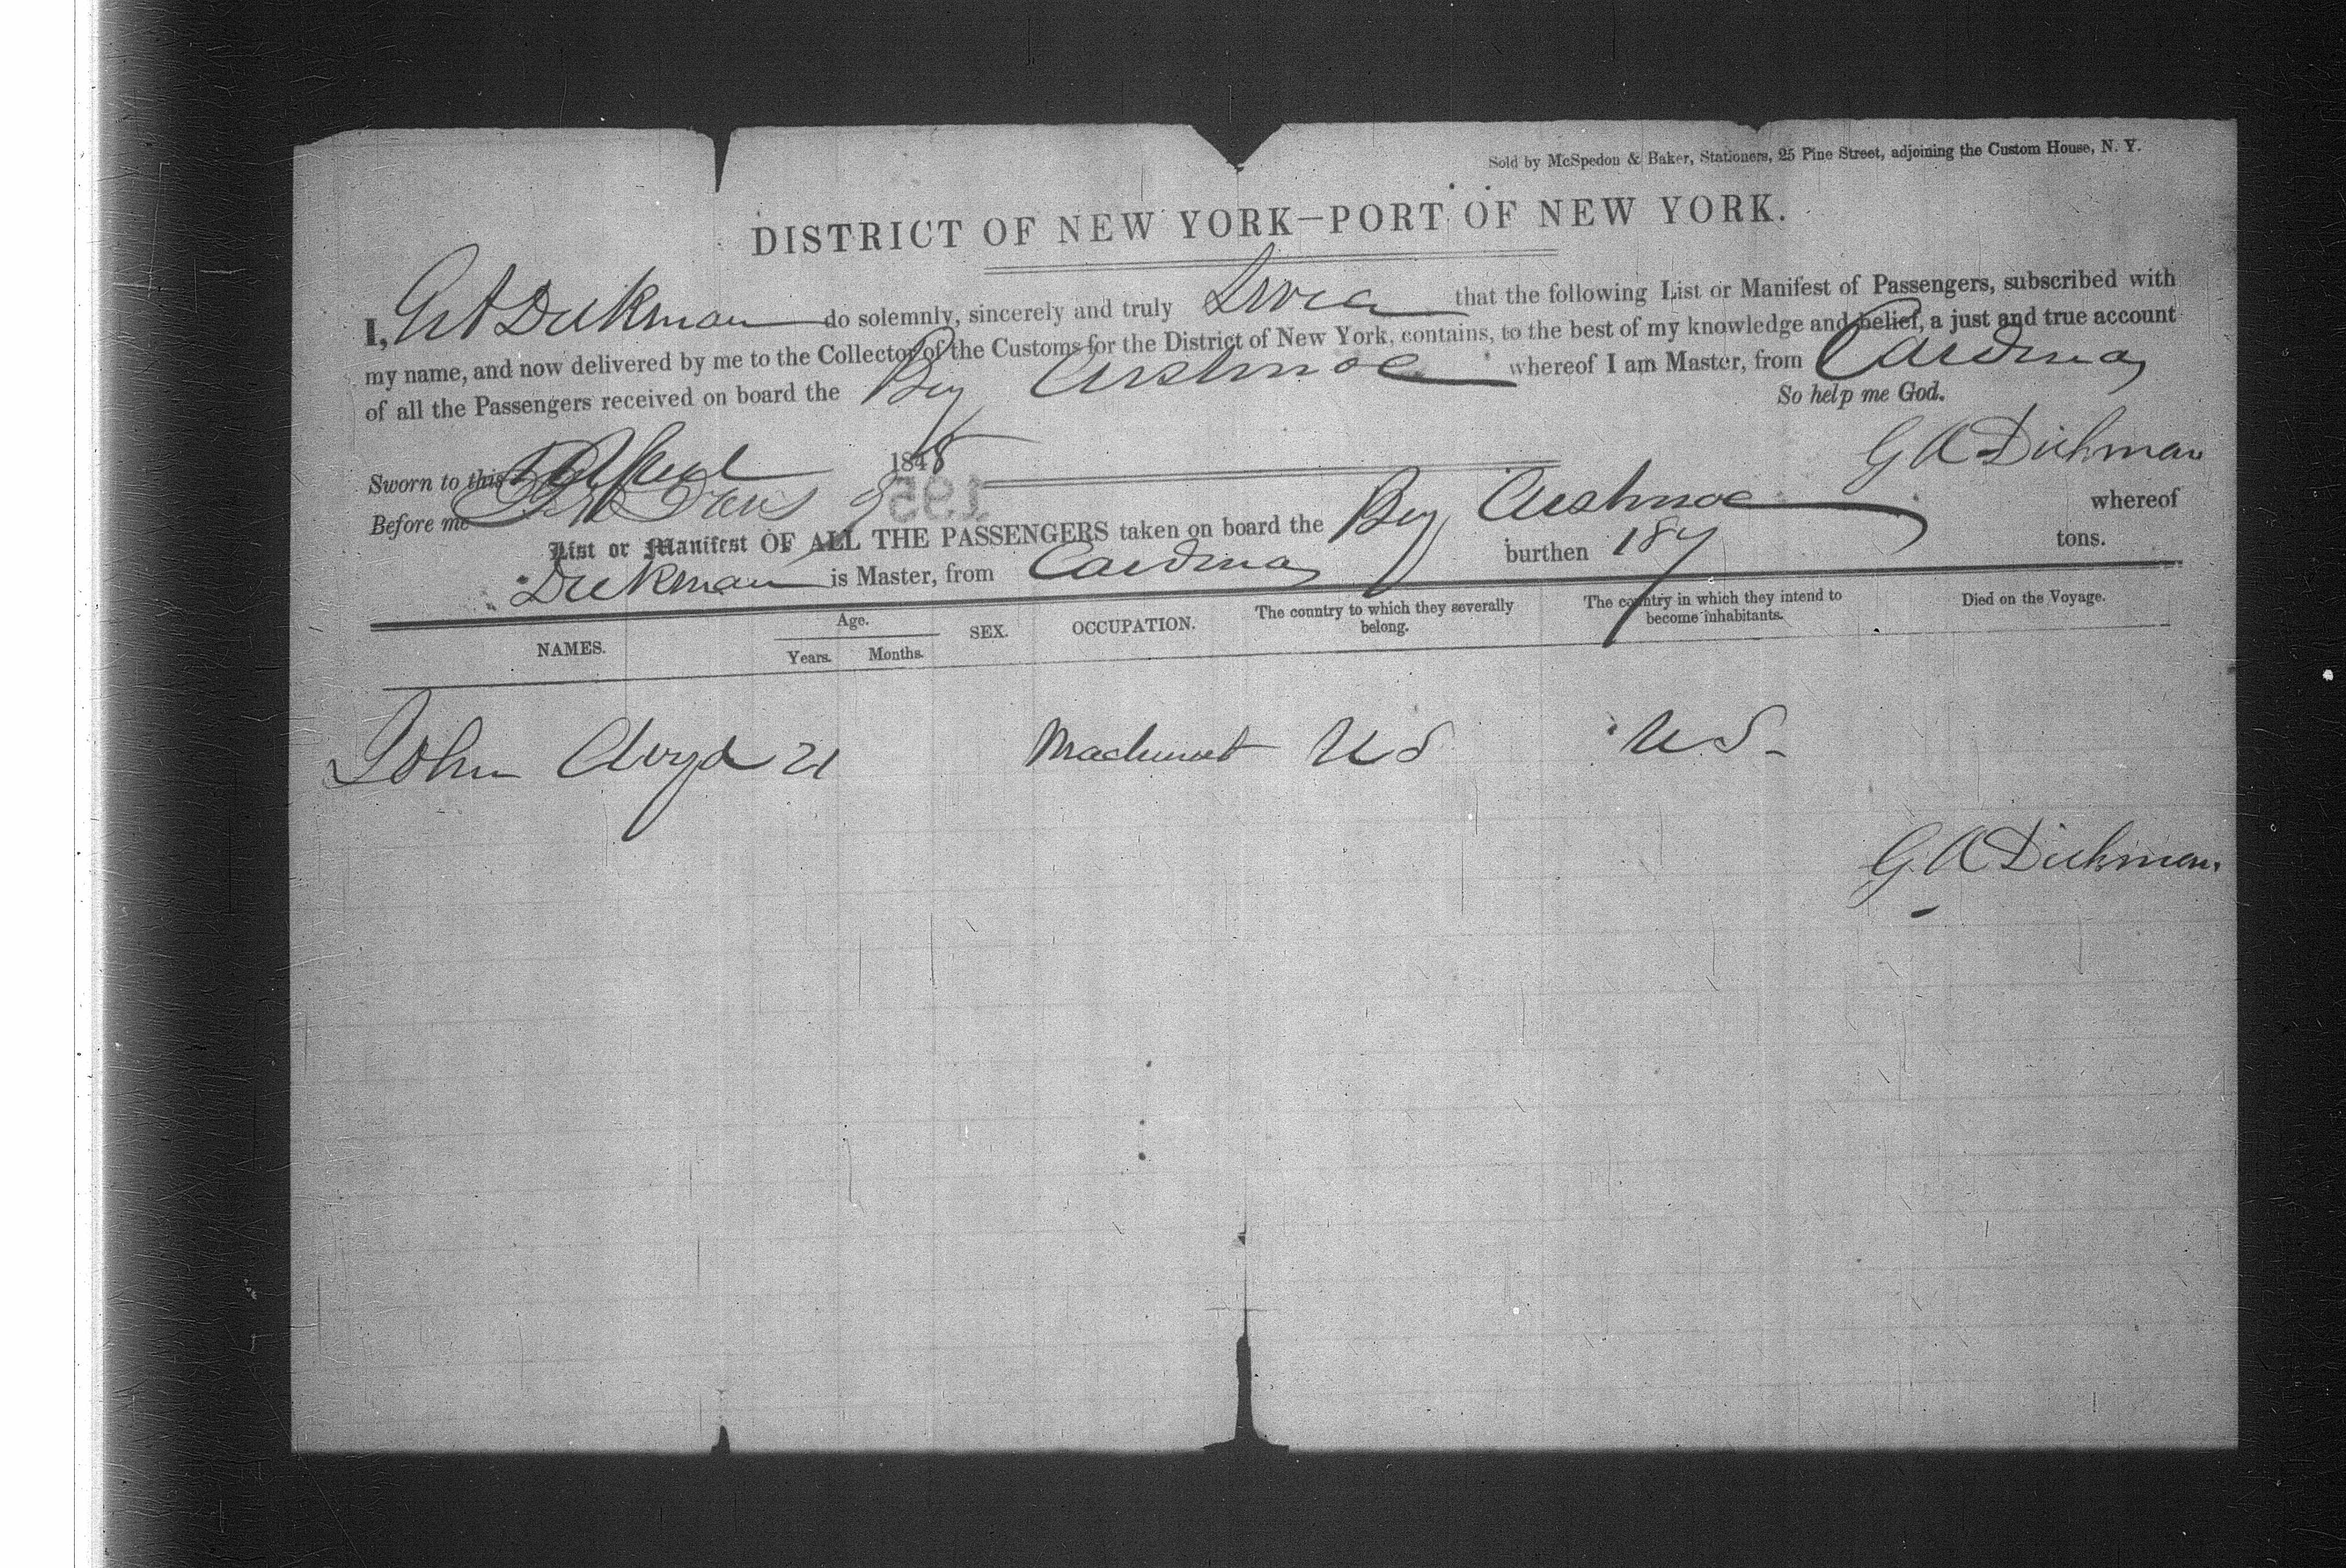 Sold by McSpedon & Baker, Stationers, 25 Pine Street, adjoining the Custom House, N. Y.
DISTRICT OF NEW YORK—PORT OF NEW YORK.
I, G A Dickman do solemnly, sincerely and truly Swear that the following List or Manifest of Passengers, subscribed with
my name, and now delivered by me to the Collector of the Customs for the District of New York, contains, to the best of my knowledge and belief, a just and true account
of all the Passengers received on board the Brig whereof I am Master, from Cardenas
So help me God.
G A Dickman
Sworn to this April 1848
Before me
195
List or Manifest OF ALL THE PASSENGERS taken on board the Brig whereof
Dickman is Master, from Cardenas burthen 187 tons.
NAMES. Age. Years. Months. SEX. OCCUPATION. The country to which they severally belong. The country in which they intend to become inhabitants. Died on the Voyage.
John 21 Machinist US U.S.
G. A Dickman.